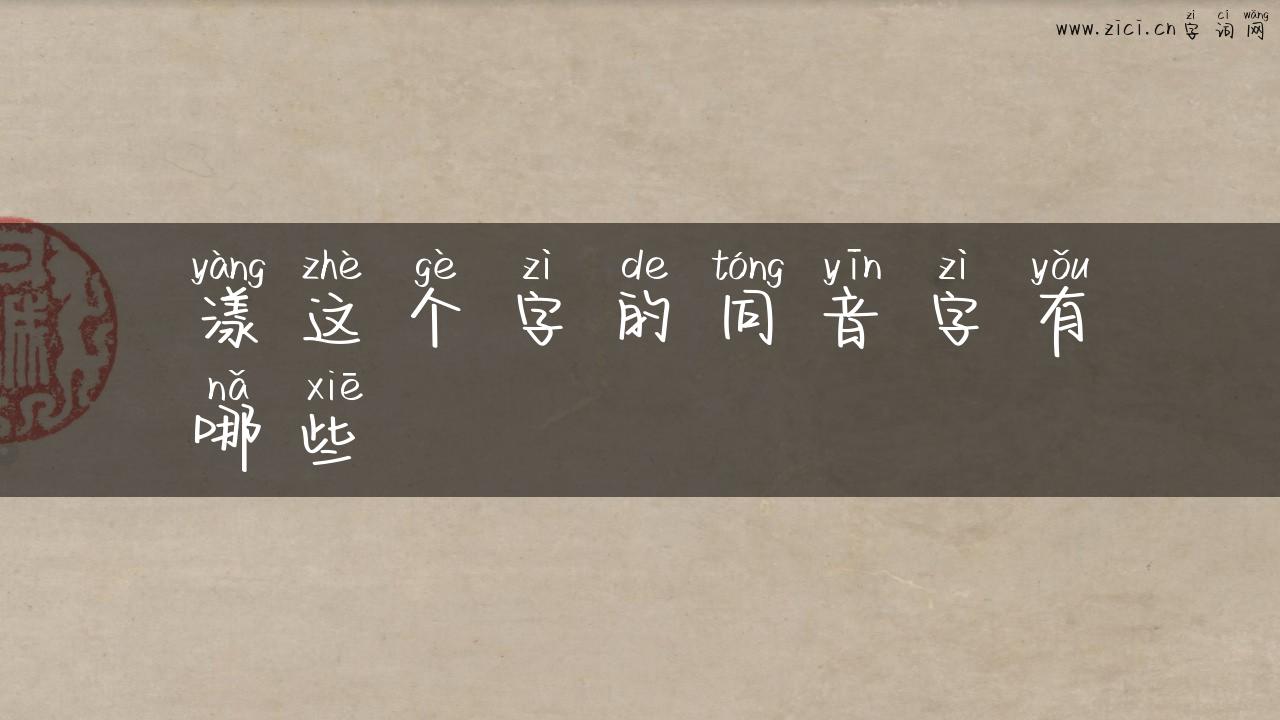 zì cí wǎng
www.zici.cn字词网
yàng zhè gè zì de tóng yīn zì yǒu
漾这个字的同音字有
nǎ xiē
哪些